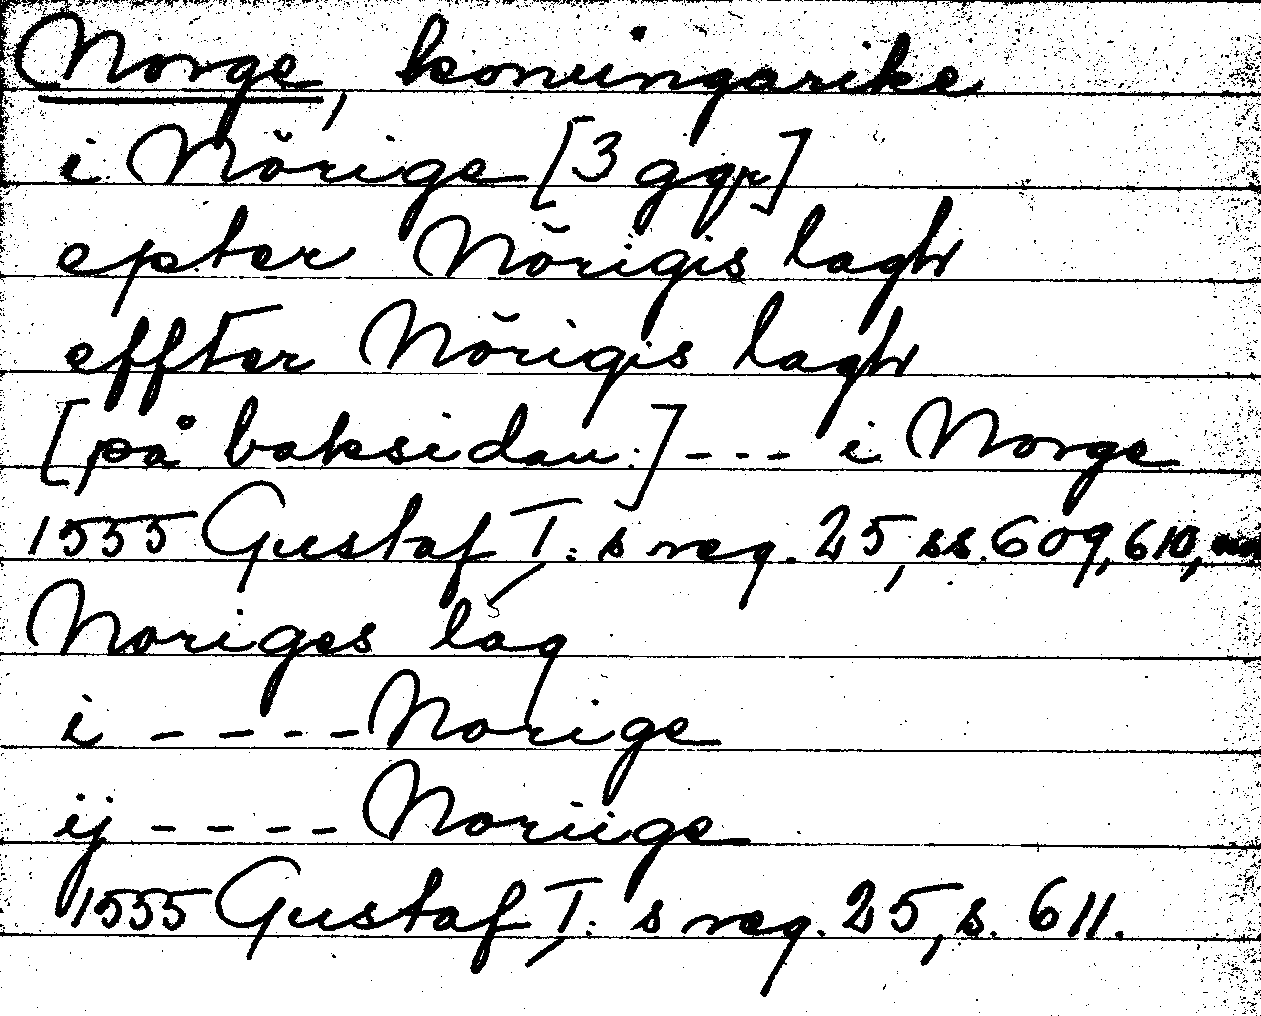 Norge, konungarike
i Nŏrige [3 ggr]
epter Nŏrigis lagh
effter Nŏrigis lagh
[på baksidan:] --- i Norge
1555 Gustaf I:s reg. 25, ss. 609, 610,
Noriges lag
i ---- Norige
ij ---- Noriige
1555 Gustaf I:s reg. 25, s. 611.